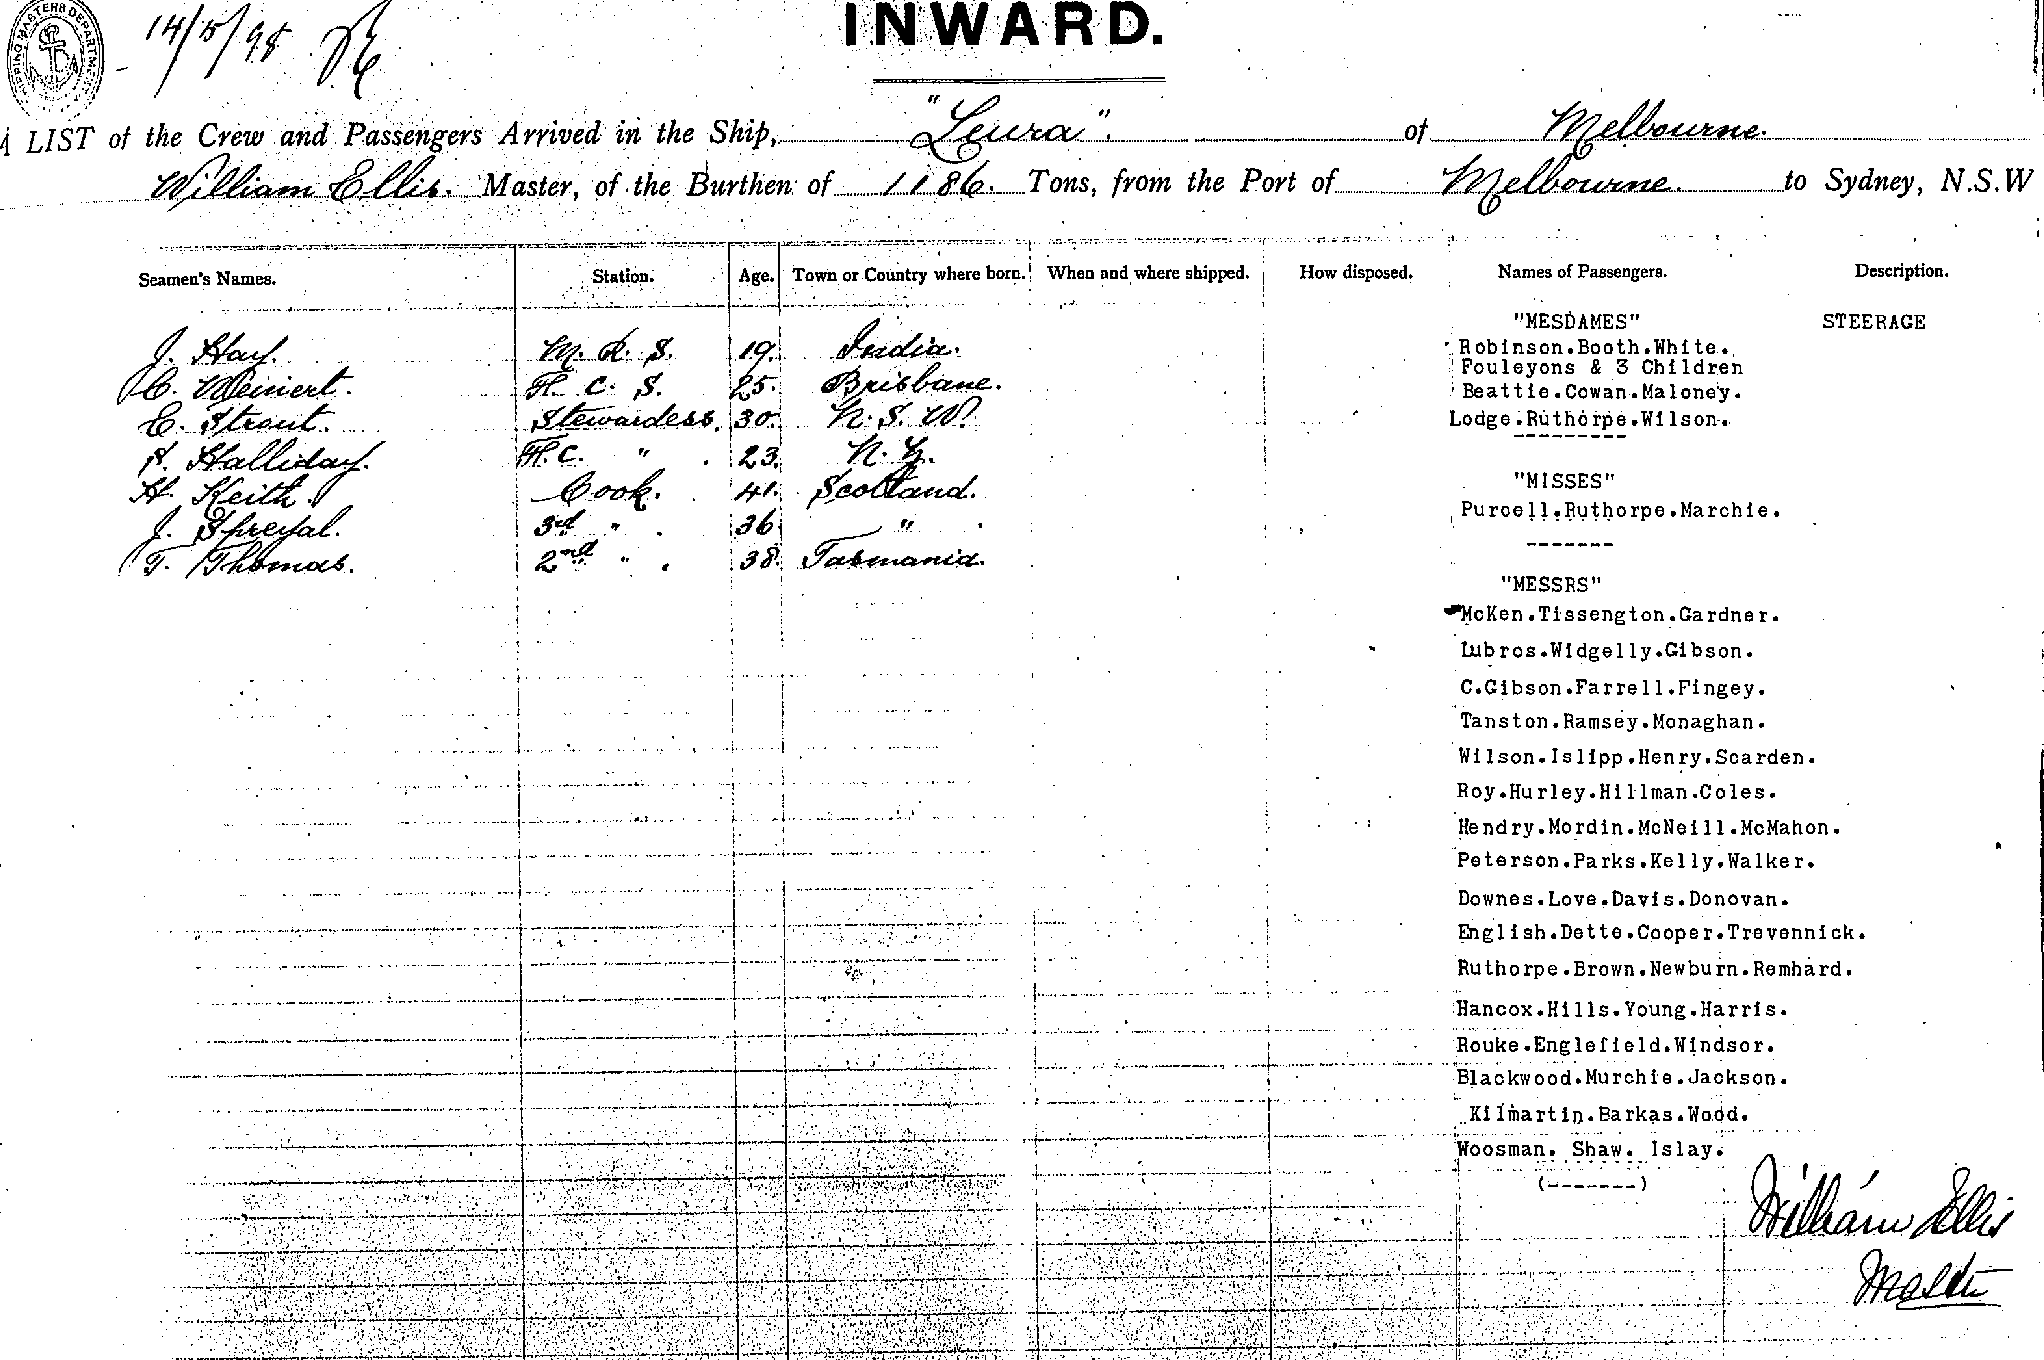 SHIPPING MASTERS DEPARTMENT
14/5/98
INWARD.
A LIST of the Crew and Passengers Arrived in the Ship, "Leura". of Melbourne.
William Ellis. Master, of the Burthen of 1186. Tons, from the Port of Melbourne. to Sydney, N.S.W
Seamen's Names. Station. Age. Town or Country where born. When and where shipped. How disposed. Names of Passengers. Description.
"MESDAMES" STEERAGE
J. Hay. M. R. S. 19. India. Robinson.Booth.White.
C. Weinert. F. C. S. 25. Brisbane. Fouleyons & 3 Children
Beattie.Cowan.Maloney.
E. Strout. Stewardess. 30. N. S. W. Lodge.Ruthorpe.Wilson.
-------
Halliday. F.C. " . 23. N. Z.
"MISSES"
H. Keith. Cook. 41. Scotland.
J. 3rd " . 36 " . Purcell.Ruthorpe.Marchie.
-------
T. Thomas. 2nd " . 38. Tasmania.
"MESSRS"
McKen.Tissengton.Gardner.
Lubros.Widgelly.Gibson.
C.Gibson.Farrell.Fingey.
Tanston.Ramsey.Monaghan.
Wilson.Islipp.Henry.Scarden.
Roy.Hurley.Hillman.Coles.
Hendry.Mordin.McNeill.McMahon.
Peterson.Parks.Kelly.Walker.
Downes.Love.Davis.Donovan.
English.Dette.Cooper.Trevennick.
Ruthorpe.Brown.Newburn.Remhard.
Hancox.Hills.Young.Harris.
Rouke.Englefield.Windsor.
Blackwood.Murchie.Jackson.
Kilmartin.Barkas.Wood.
Woosman. Shaw. Islay.
(-------)
William Ellis
Master